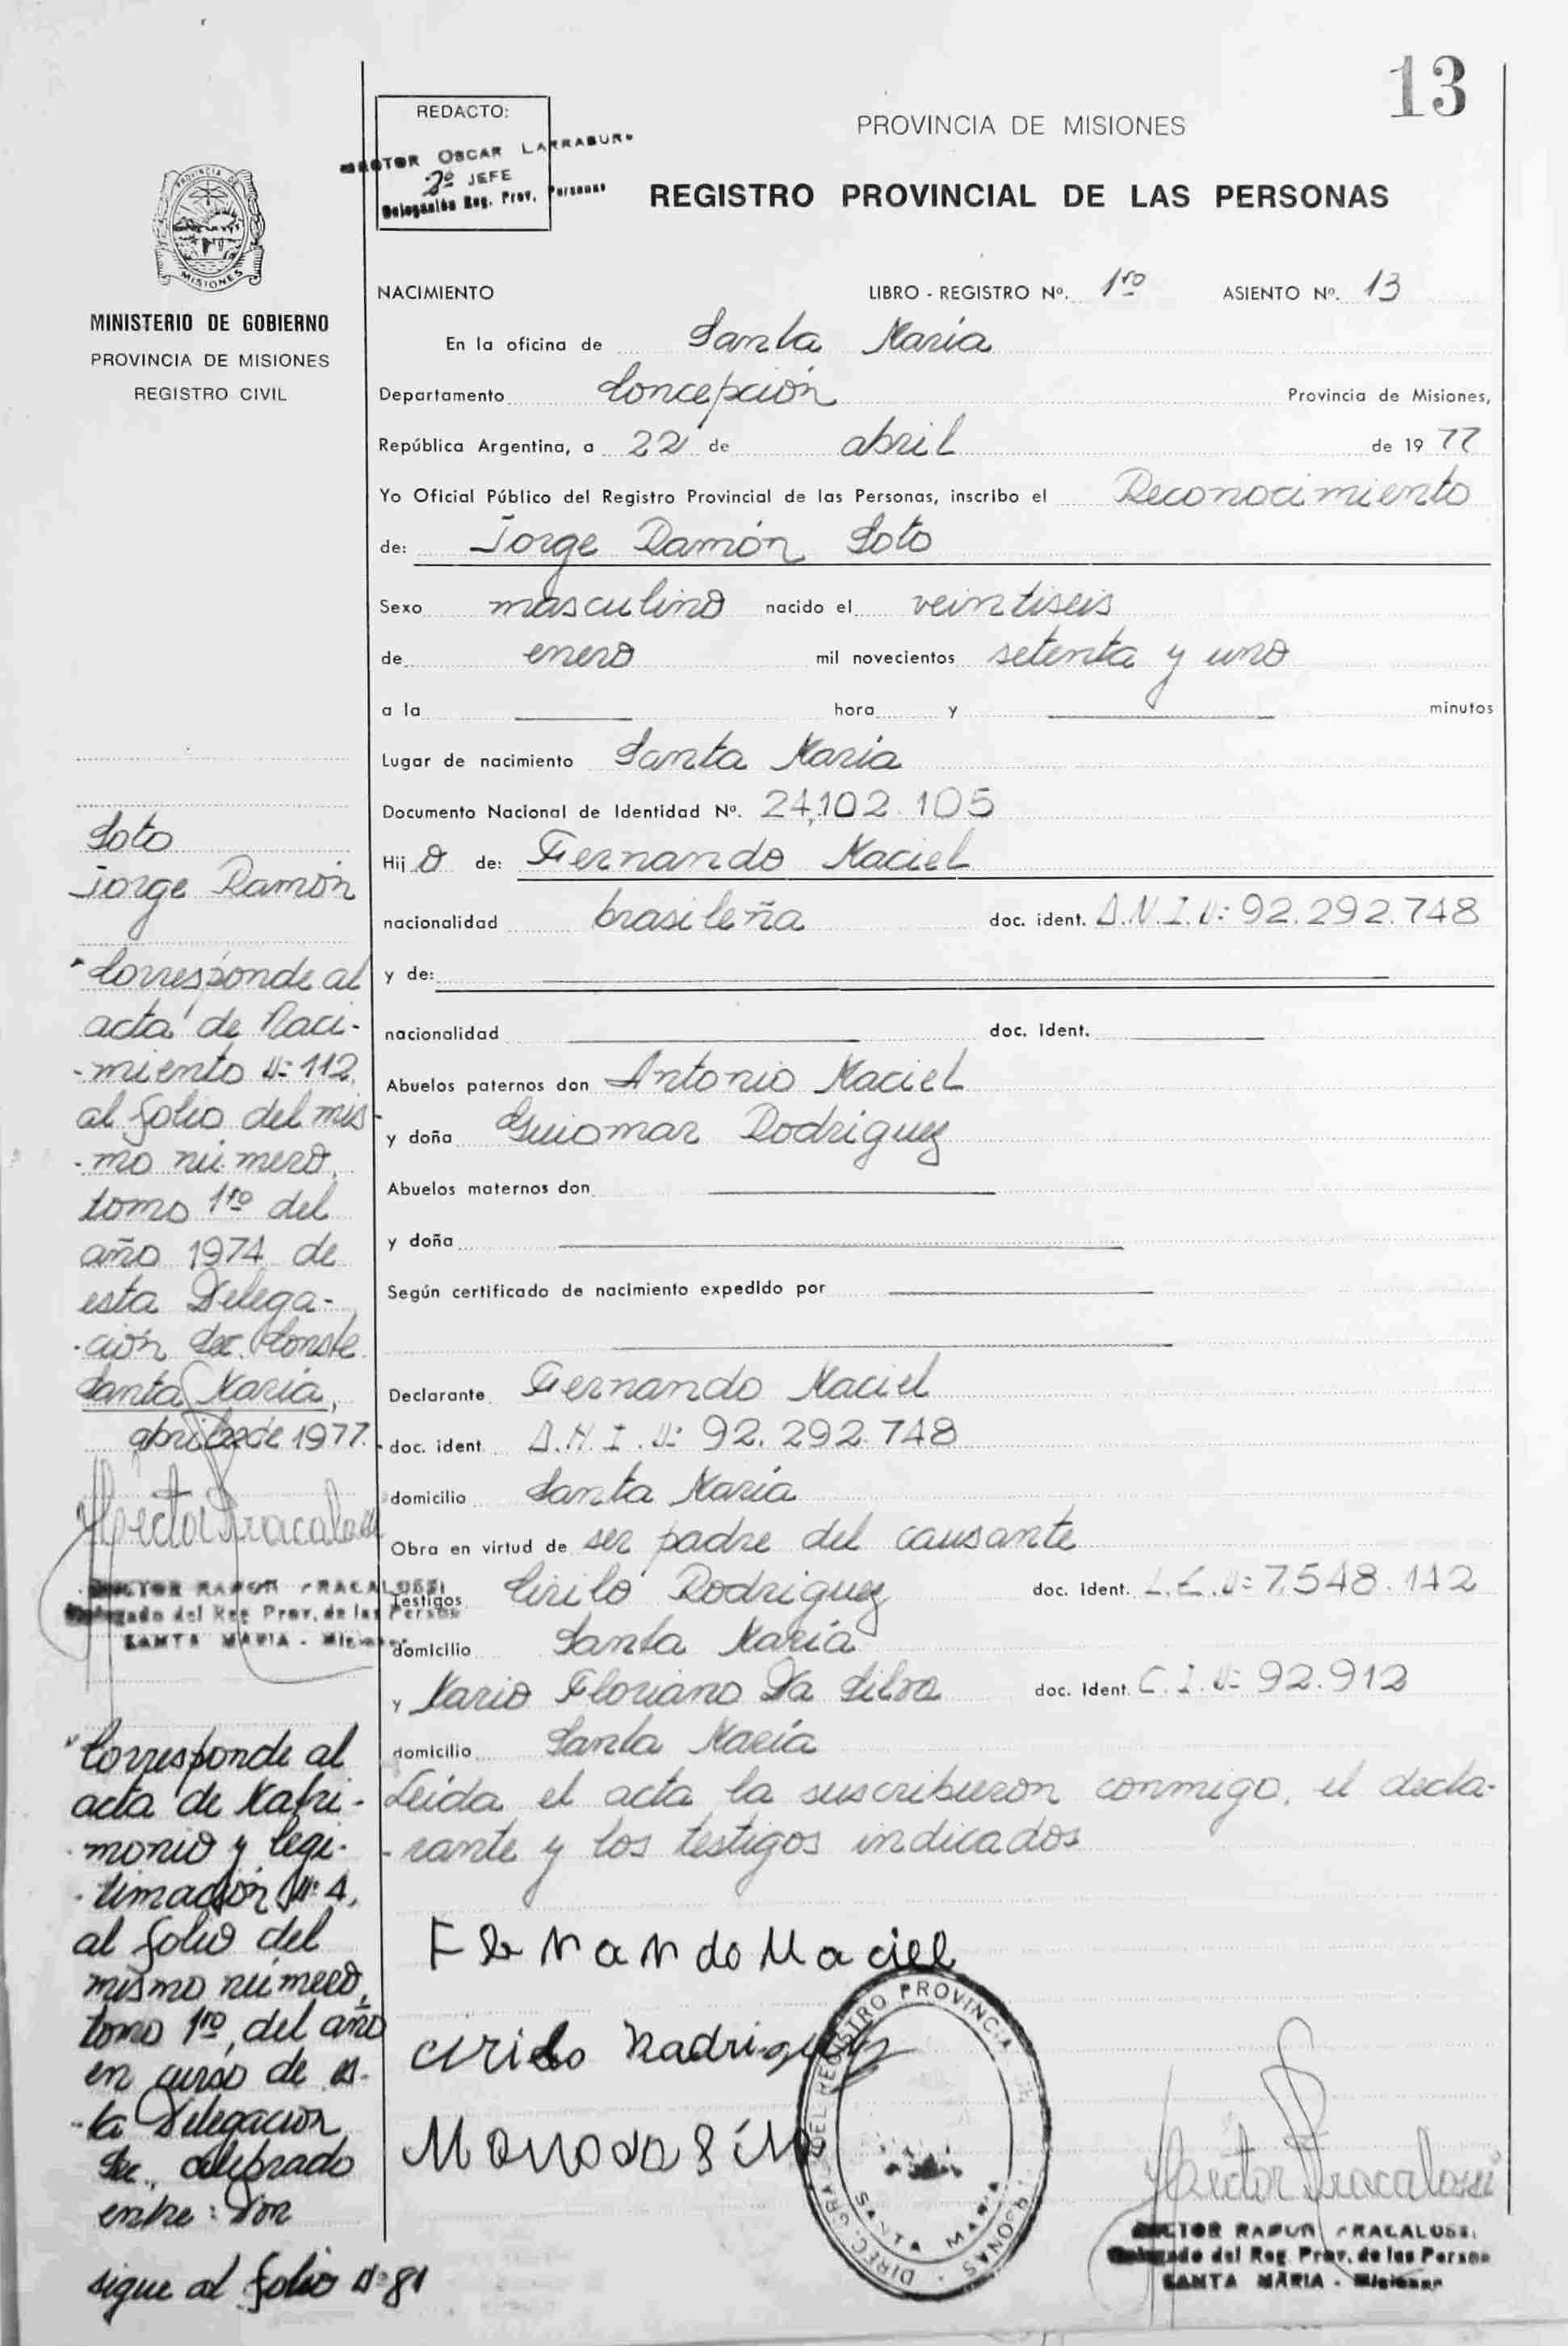 13
REDACTO:
OSCAR LARRABUR
2º JEFE
Delegación Reg. Prov. Personas
PROVINCIA DE MISIONES
REGISTRO PROVINCIAL DE LAS PERSONAS
PROVINCIA DE
MISIONES
MINISTERIO DE GOBIERNO
PROVINCIA DE MISIONES
REGISTRO CIVIL
NACIMIENTO LIBRO - REGISTRO Nº. 1ro ASIENTO Nº. 13
En la oficina de Santa María
Departamento Concepción Provincia de Misiones,
República Argentina, a 22 de abril de 1977
Yo Oficial Público del Registro Provincial de las Personas, inscribo el Reconocimiento
de: Jorge Ramón Soto
Sexo masculino nacido el veintiseis
de enero mil novecientos setenta y uno
a la hora y minutos
Lugar de nacimiento Santa María
Documento Nacional de Identidad Nº. 24.102.105
Hijo de: Fernando Maciel
nacionalidad brasileña doc. ident. D.N.I.Nº 92.292.748
y de:
nacionalidad doc. ident.
Abuelos paternos don Antonio Maciel
y doña Guiomar Rodriguez
Abuelos maternos don
y doña
Según certificado de nacimiento expedido por
Declarante Fernando Maciel
doc. ident. D.N.I.Nº 92.292.748
domicilio Santa María
Obra en virtud de ser padre del causante
Testigos Cirilo Rodriguez doc. ident. L.E.Nº 7.548.142
domicilio Santa María
y Mario Floriano Da Silva doc. ident. C.I.Nº 92.912
domicilio Santa María
Leída el acta la suscribieron conmigo, el decla-
-rante y los testigos indicados
Fernando Maciel
cirilo Radriguez
Soto
Jorge Ramón
"Corresponde al
acta de Naci-
-miento Nº 112,
al folio del mis
-mo número,
tomo 1ro del
año 1974 de
esta Delega-
-ción Sec. Conste.
Santa María,
abril 22 de 1977.
Hector Fracalossi
HECTOR RAMON FRACALOSSI
Delegado del Reg. Prov. de las Person
SANTA MARIA - Misiones
"Corresponde al
acta de Matri-
-monio y legi-
-timación Nº 4,
al folio del
mismo número,
tomo 1ro, del año
en curso de es-
-ta Delegación
Sec., celebrado
entre: Don
sigue al folio Nº 81
DIREC. GRAL. DEL REGISTRO PROVINCIA DE PERSONAS
SANTA MARIA
Hector Fracalossi
HECTOR RAMON FRACALOSSI
Delegado del Reg. Prov. de las Person
SANTA MARIA - Misiones